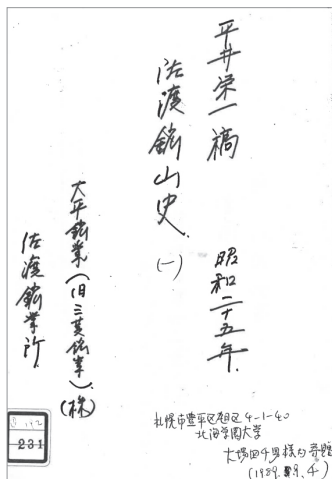 平井栄一稿
佐渡鉱山史
(一)
昭和二十五年.
太平鉱業(旧三菱鉱業)(株)
佐渡鉱業所
札幌市豊平区旭区4-1-40
北海学園大学
大場四千男様の寄贈
(1989. 9. 4)
231